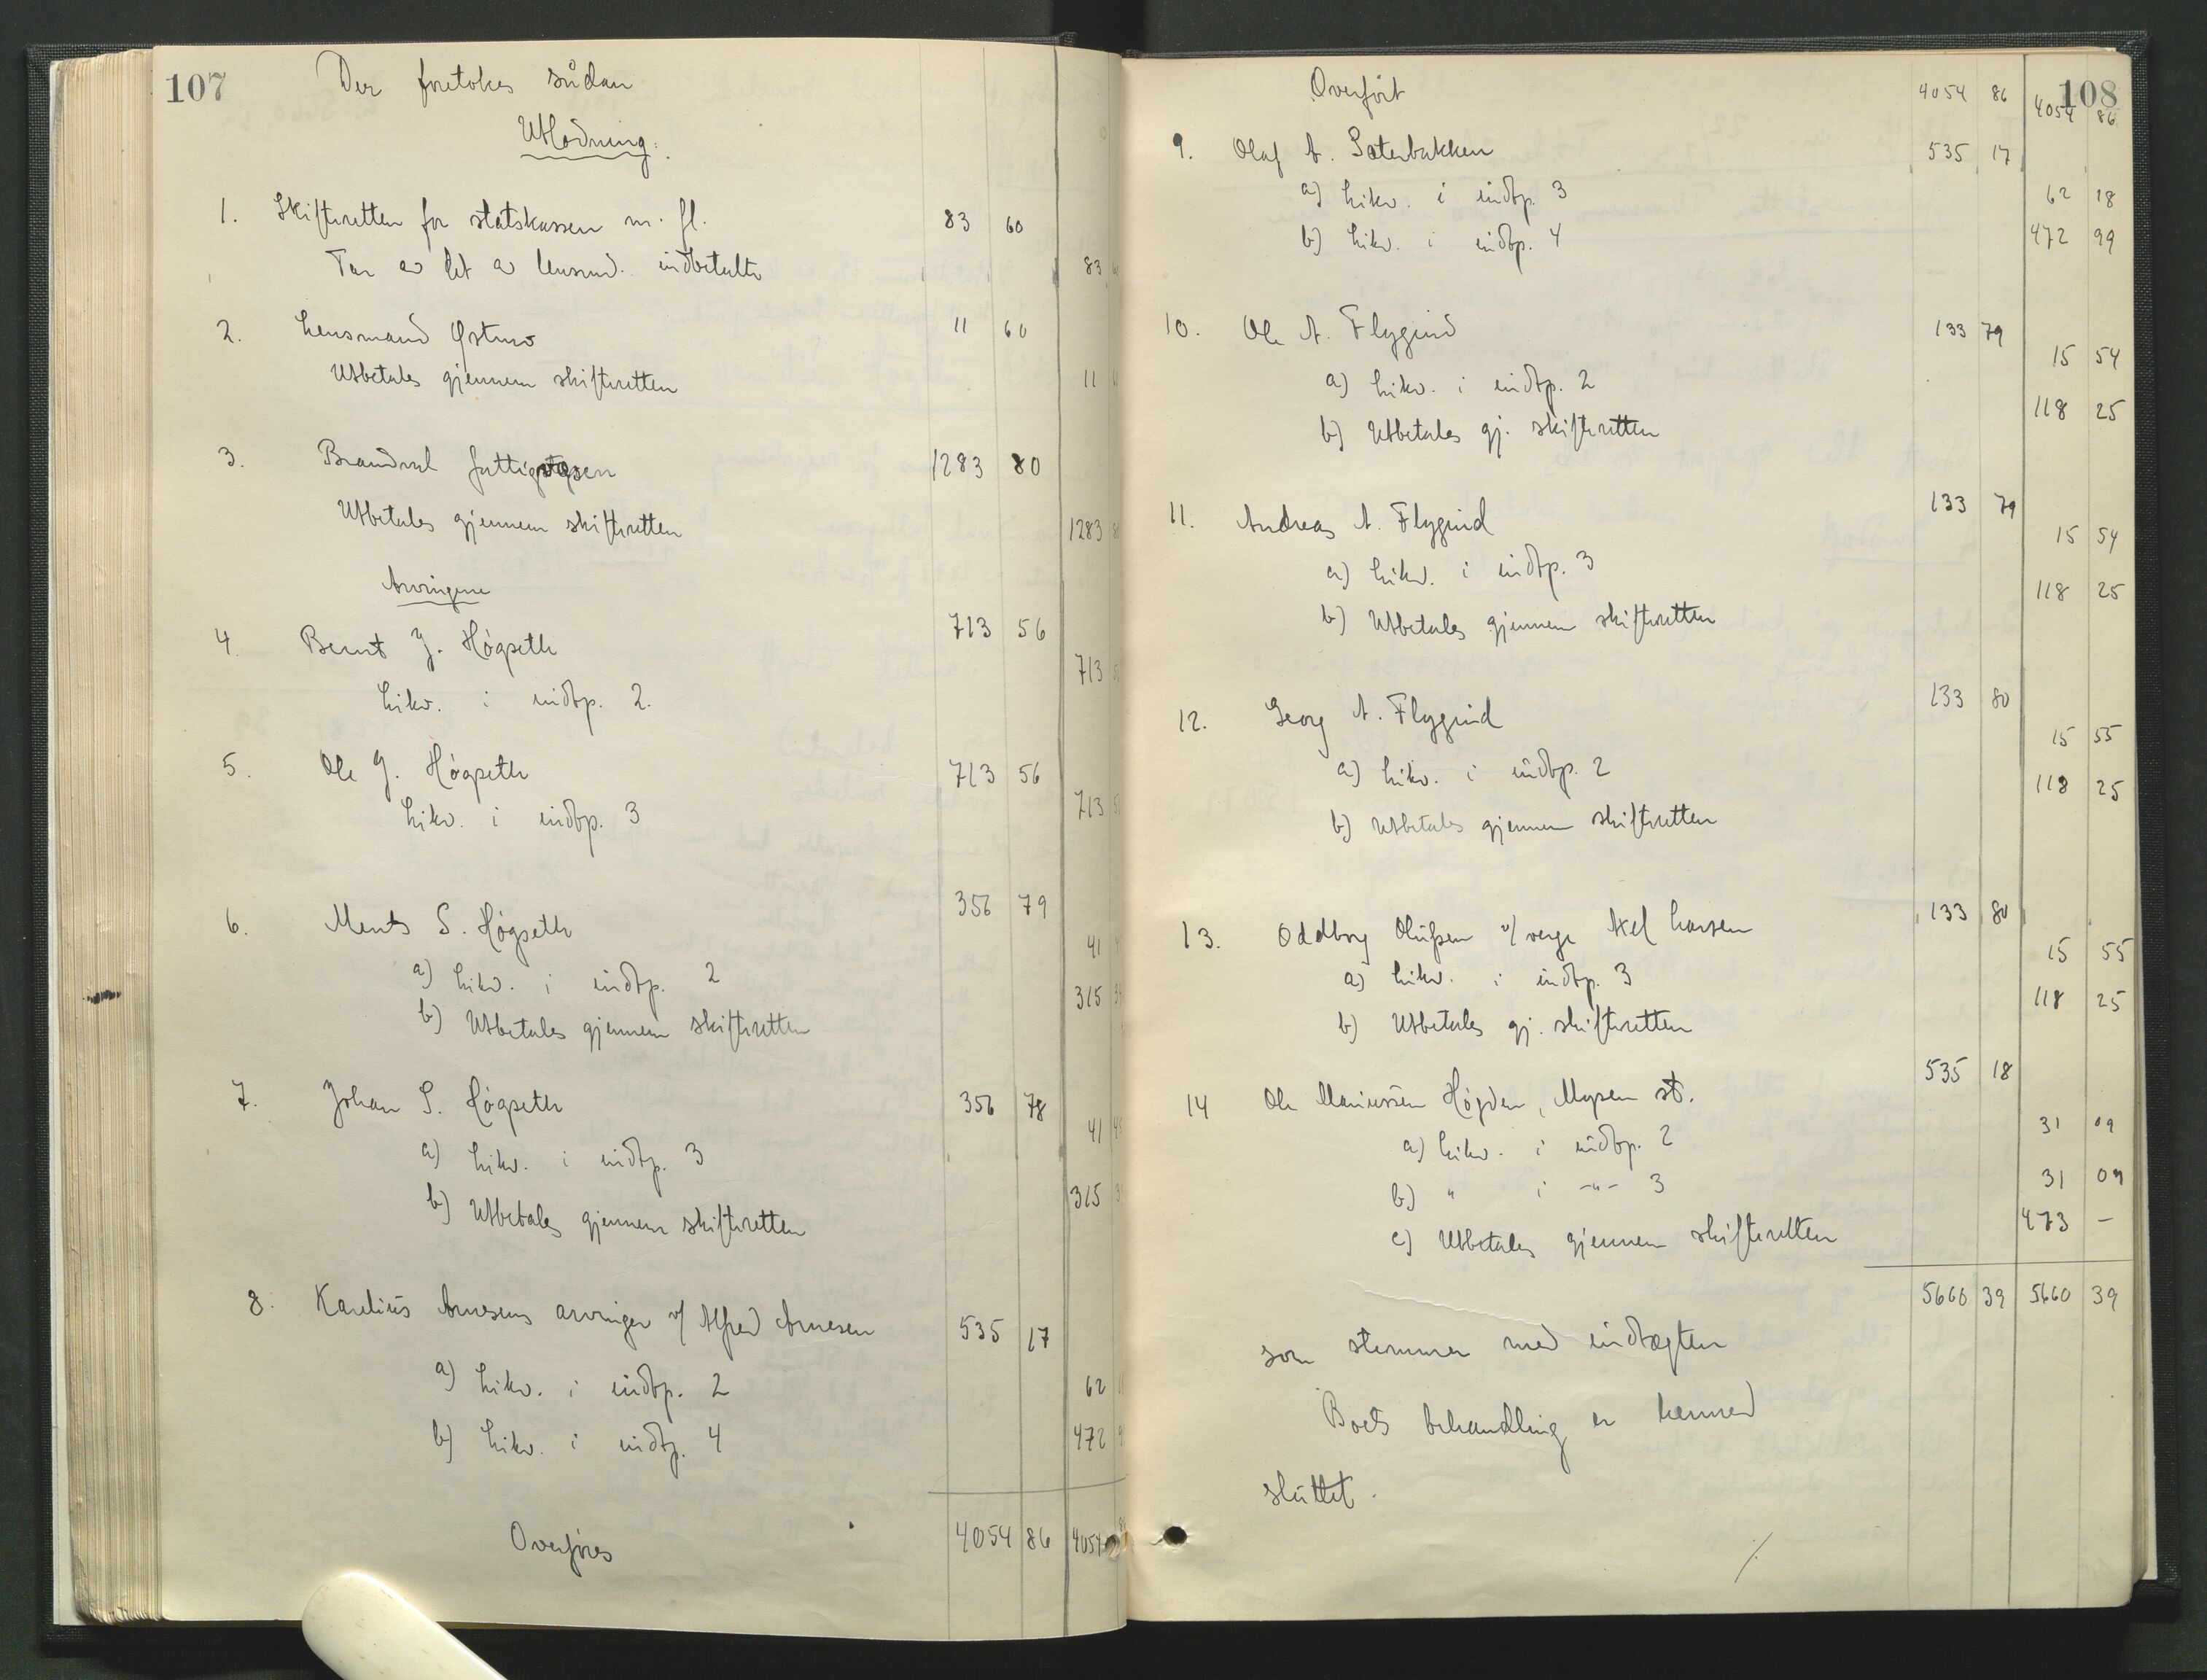 107
Der foretokes sådan
Utlodning:
1. Skifteretten for statskassen m. fl. 83 60
Tar av det av lensmd. indbetalte 83
2. Lensmand Østmo 11 60
Utbetales gjennem skifteretten 11
3. Brandval fattigvæsen 1283 80
Utbetales gjennem skifteretten 1283
Arvingene
4. Bernt J. Høgseth 713 56
Likv. i indtp. 2. 713
5. Ole J. Høgseth 713 56
Likv. i indtp. 3 713
6. Ments S. Høgseth 356 79
a) Likv. i indtp. 2 41
b) Utbetales gjennem skifteretten 315
7. Johan S. Høgseth 356 78
a) Likv. i indtp. 3 41
b) Utbetales gjennem skifteretten 315
8. Karelius Arnesens arvinger v/ Alfred Arnesen 535 17
a) Likv. i indtp. 2 62
b) Likv. i indtp. 4 472
Overføres 4054 86 4054
108
Overført 4054 86 4054 86
9. Olaf A. Sæterbakken 535 17
a) Likv. i indtp. 3 62 18
b) Likv. i indtp. 4 472 99
10. Ole A. Flygind 133 79
a) Likv. i indtp. 2 15 54
b) Utbetales gj. skifteretten 118 25
11. Andreas A. Flygind 133 79
a) Likv. i indtp. 3 15 54
b) Utbetales gjennem skifteretten 118 25
12. Georg A. Flygind 133 80
a) Likv. i indtp. 2 15 55
b) Utbetales gjennem skifteretten 118 25
13. Oddborg Olufsen v/ verge Axel Larsen 133 80
a) Likv. i indtp. 3 15 55
b) Utbetales gj. skifteretten 118 25
14 Ole Mariussen Høyden, Mysen st. 535 18
a) Likv. i indtp. 2 31 09
b) " i -"- 3 31 09
c) Utbetales gjennem skifteretten 473 –
5660 39 5660 39
som stemmer med indtægten
Boets behandling er hermed
sluttet.